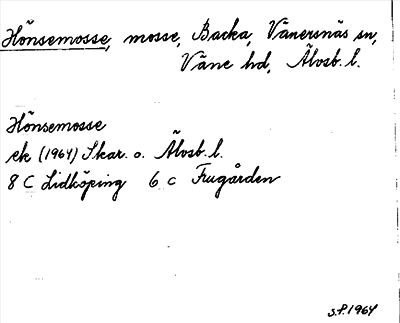 Hönsemosse, mosse, Backa, Vänersnäs sn,
Väne hd, Älvsb. l.
Hönsemosse
ek (1964) Skar. o. Älvsb. l.
8 C Lidköping 6 c Frugården
S.F. 1964